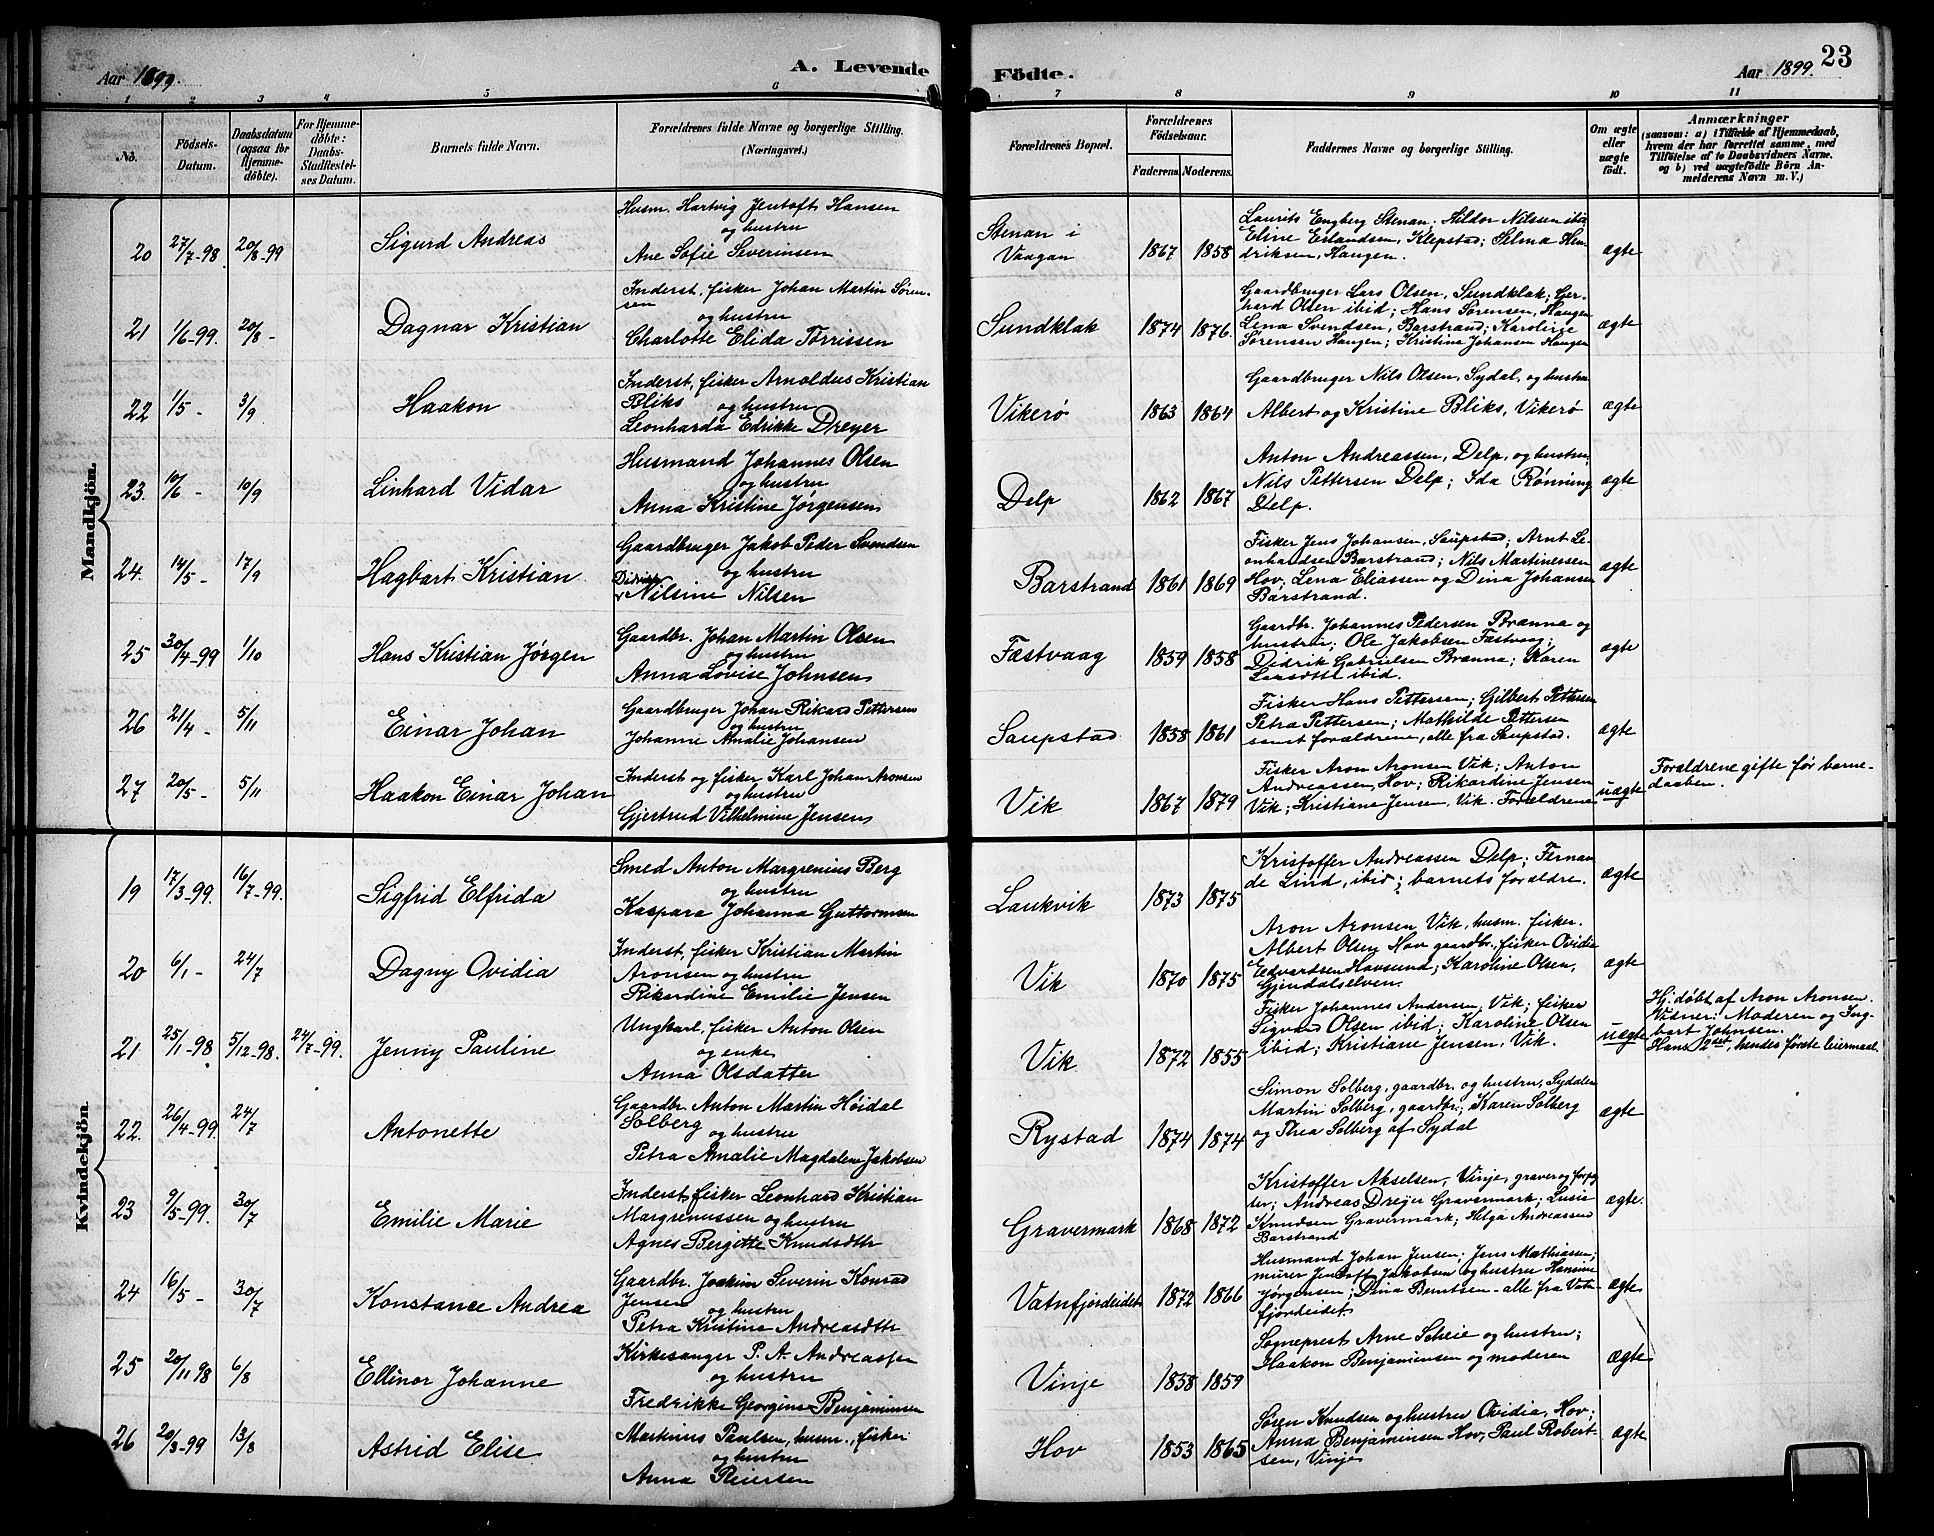 Aar 1899.
A. Levende
Födte.
Aar 1899.
23
1 2 3 4 5 6 7 8 9 10 11
No.
Födsels-
Datum.
Daabsdatum
(ogsaa for
Hjemme-
döbte).
For Hjemme-
döbte:
Daabs-
Stadfæstel-
ses Datum.
Barnets fulde Navn.
Forældrenes fulde Navne og borgerlige Stilling.
(Næringsvei.)
Forældrenes Bopæl.
Forældrenes
Födselsaar.
Faderens. Moderens.
Faddernes Navne og borgerlige Stilling.
Om ægte
eller
uægte
födt.
Anmærkninger
(saasom: a) i Tilfælde af Hjemmedaab,
hvem der har forrettet samme, med
Tilföielse af to Daabsvidners Navne,
og b) ved uægtefödte Börn An-
melderens Navn m. V.)
Mandkjön.
20 27/7-98. 20/8-99 Sigurd Andreas
Husm. Hartvig Jentoft Hansen
og hustru
Ane Sofie Severinsen
Stenan i
Vaagan 1867 1858
Laurits Engberg Stenan; Hildor Nilsen ibid
Eline Erlandsen, Klepstad; Selma Hen-
driksen, Haugen.
ægte
21 1/6-99. 20/8- Dagnar Kristian
Inderst, fisker Johan Martin Sören-
sen
og hustru
Charlotte Elida Tørrissen
Sundklak 1874 1876.
Gaardbruger Lars Olsen, Sundklak; Ger-
herd Olsen ibid; Hans Sørensen, Haugen
Lena Svendsen, Barstrand; Karoline
Sørensen Haugen; Kristine Johansen Haugen
ægte
22 1/5- 3/9 Haakon
Inderst, fisker Arnoldus Kristian
Bliks og hustru
Leonharda Edrikke Dreyer
Vikerø 1863 1864
Gaardbruger Nils Olsen, Sydal, og hustru
Albert og Kristine Bliks, Vikerø
ægte
23. 10/6- 10/9 Linhard Vidar
Husmand Johannes Olsen
og hustru
Anna Kristine Jørgensen
Delp 1862 1867
Anton Andreassen, Delp, og hustru,
Nils Pettersen Delp; Ida Rønning
Delp.
ægte
24. 14/5- 17/9 Hagbart Kristian
Gaardbruger Jakob Peder Svendsen
og hustru
Nilsine Nilsen
Barstrand 1861 1869
Fisker Jens Johansen, Saupstad; Arnt Le-
onhardsen Barstrand; Nils Martinensen
Hov; Lena Eliassen og Dina Johansen
Barstrand.
ægte
25 30/4-99 1/10 Hans Kristian Jørgen
Gaardbr. Johan Martin Olsen
og hustru
Anna Lovise Johnsen
Fæstvaag 1859 1858
Gaardbr. Johannes Pedersen Brænna og
hustru; Ole Jakobsen Fæstvaag;
Didrik Gabrielsen Brænna; Karen
Larsdttr ibid.
ægte
26 21/4- 5/11 Einar Johan
Gaardbruger Johan Rikard Pettersen
og hustru
Johanne Amalie Johansen
Saupstad 1858 1861
Fisker Hans Pettersen; Gilbert Pettersen
Petra Pettersen; Mathilde Pettersen
samt forældrene, alle fra Saupstad.
ægte
27 20/5- 5/11 Haakon Einar Johan
Inderst og fisker Karl Johan Aronsen
og hustru
Gjertrud Vilhelmine Jensen
Vik 1867 1879
Fisker Aron Aronsen Vik; Anton
Andreassen, Hov; Rikardine Jensen
Vik; Kristiane Jensen, Vik. Forældrene
uægte
Forældrene gifte før barne-
daaben.
Kvindekjön.
19 17/3-99. 16/7-99. Sigfrid Elfrida
Smed Anton Margrenius Berg
og hustru
Kaspara Johanna Guttormsen
Laukvik 1873 1875
Kristoffer Andreassen Delp; Fernan-
de Lind, ibid; barnets forældre.
ægte
20 6/1- 24/7 Dagny Ovidia
Inderst, fisker Kristian Martin
Aronsen og hustru
Rikardine Emilie Jensen
Vik 1870 1875
Aron Aronsen Vik, husm. fisker.
Albert Olsen Hov gaardbr., fisker Ovidia
Edvardsen Havsund; Karoline Olsen,
Gjendalselven.
ægte
21 25/11-98 5/12-98. 24/7-99. Jenny Pauline
Ungkarl, fisker Anton Olsen
og enke
Anna Olsdatter
Vik 1872 1855
Fisker Johannes Andersen, Vik; fisker
Sigvard Olsen ibid; Karoline Olsen
ibid; Kristiane Jensen, Vik.
uægte
Hj. døbt af Aron Aronsen.
Vidner: Moderen og Ing-
bart Johnsen.
Hans 2det, hendes første leiermaal.
22. 26/4-99. 24/7 Antonette
Gaardbr. Anton Martin Høidal
Solberg og hustru
Petra Amalie Magdalene Jakobsen
Rystad 1874 1874
Simon Solberg, gaardbr. og hustru, Sydalen
Martin Solberg, gaardbr; Karen Solberg
og Thea Solberg af Sydal
ægte
23 9/5-99. 30/7 Emilie Marie
Inderst, fisker Leonhard Kristian
Margrenussen og hustru
Agnes Bergitte Knudsdttr
Gravermark 1868 1872
Kristoffer Akselsen, Vinje, graver og
Andreas Dreyer Gravermark; Lusie
Knudsen Gravermark; Helga Andreassen
Barstrand
ægte.
24 16/5- 30/7 Konstance Andrea
Gaardbr. Joakim Severin Konrad
Jensen
og hustru
Petra Kristine Andreasdttr
Vatnfjordeidet 1872 1866
Husmand Johan Jensen; Jens Mathiassen;
murer Jentoft Jakobsen og hustru Hansine
Jørgensen; Dina Berntsen - alle fra Vatn-
fjordeidet
ægte
25 20/11 98 6/8 Ellinor Johanne
Kirkesanger P. A. Andreassen
og hustru
Fredrikke Georgine Benjaminsen
Vinje 1858 1859
Sogneprest Arne Scheie og hustru;
Haakon Benjaminsen og moderen
ægte
26 20/3-99 13/8 Astrid Elise
Martinus Paulsen, husm., fisker
og hustru
Anna Reiersen
Hov 1853 1865
Søren Knudsen og hustru Ovidia, Hov;
Anna Benjaminsen Hov, Paul Robert-
sen, Vinje
ægte